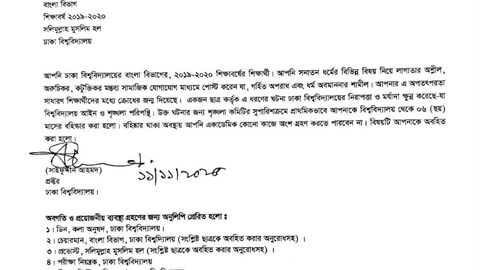 বাংলা বিভাগ
শিক্ষাবর্ষ ২০১৯-২০২০
সলিমুল্লাহ মুসলিম হল
ঢাকা বিশ্ববিদ্যালয়
আপনি ঢাকা বিশ্ববিদ্যালয়ের বাংলা বিভাগের, ২০১৯-২০২০ শিক্ষাবর্ষের শিক্ষার্থী। আপনি সনাতন ধর্মের বিভিন্ন বিষয় নিয়ে লাগাতার অশ্লীল,
অরুচিকর, কটূক্তিকর মন্তব্য সামাজিক যোগাযোগ মাধ্যমে পোস্ট করেন যা, গর্হিত অপরাধ এবং ধর্ম অবমাননার শামীল। আপনার এ অপতৎপরতা
সাধারণ শিক্ষার্থীদের মধ্যে ক্রোধের জন্ম দিয়েছে। একজন ছাত্র কর্তৃক এ ধরণের ঘটনা ঢাকা বিশ্ববিদ্যালয়ের নিরাপত্তা ও মর্যাদা ক্ষুন্ন করেছে-যা
বিশ্ববিদ্যালয় আইন ও শৃঙ্খলা পরিপন্থি। উক্ত ঘটনার জন্য শৃঙ্খলা কমিটির সুপারিশক্রমে প্রাথমিকভাবে আপনাকে বিশ্ববিদ্যালয় থেকে ০৬ (ছয়)
মাসের বহিষ্কার করা হলো। বহিষ্কার থাকা অবস্থায় আপনি একাডেমিক কোনো কাজে অংশ গ্রহণ করতে পারবেন না। বিষয়টি আপনাকে অবহিত
করা হলো।
১১/১১/২০২৫
(সাইফুদ্দীন আহমদ)
প্রক্টর
ঢাকা বিশ্ববিদ্যালয়।
অবগতি ও প্রয়োজনীয় ব্যবস্থা গ্রহণের জন্য অনুলিপি প্রেরিত হলো :
১। ডিন, কলা অনুষদ, ঢাকা বিশ্ববিদ্যালয়।
২। চেয়ারম্যান, বাংলা বিভাগ, ঢাকা বিশ্ববিদ্যালয় (সংশ্লিষ্ট ছাত্রকে অবহিত করার অনুরোধসহ) ।
৩। প্রভোস্ট, সলিমুল্লাহ মুসলিম হল (সংশ্লিষ্ট ছাত্রকে অবহিত করার অনুরোধসহ) ।
৪। পরীক্ষা নিয়ন্ত্রক, ঢাকা বিশ্ববিদ্যালয়